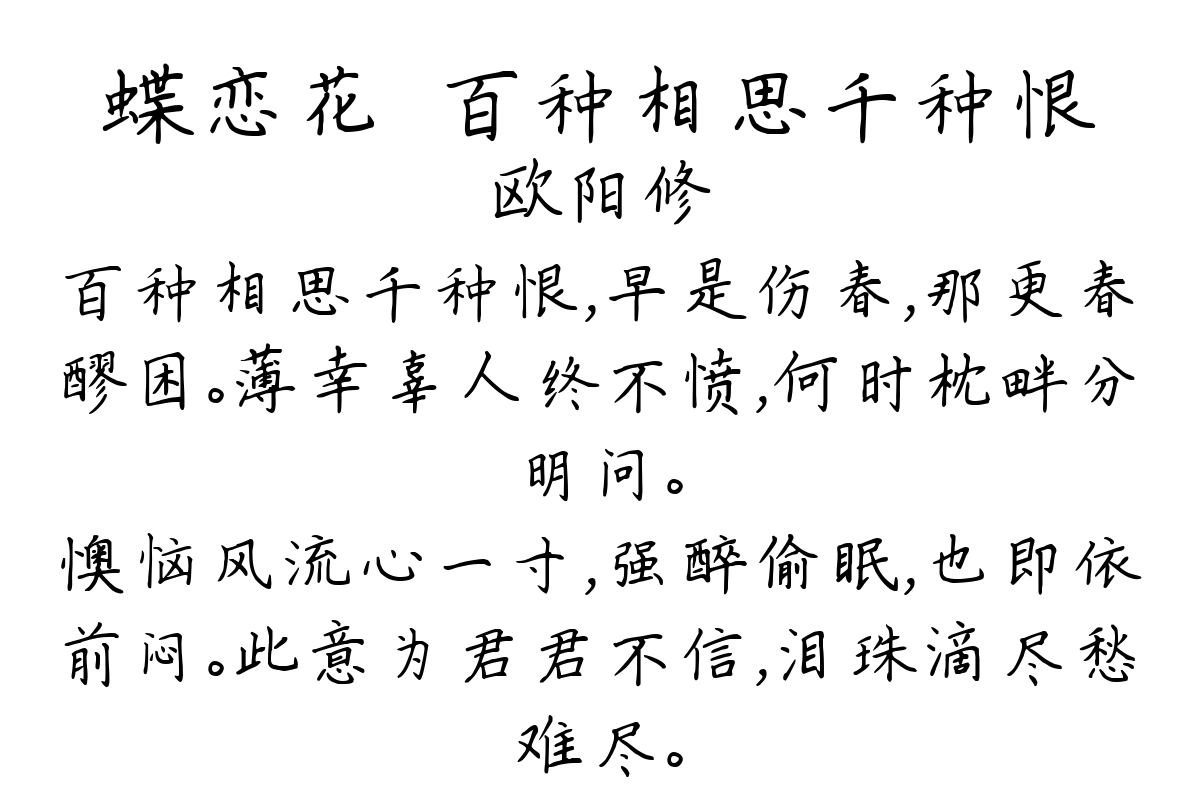 蝶恋花 百种相思千种恨
欧阳修
百种相思千种恨,早是伤春,那更春
醪困。薄幸辜人终不愤,何时枕畔分
明问。
懊恼风流心一寸,强醉偷眠,也即依
前闷。此意为君君不信,泪珠滴尽愁
难尽。